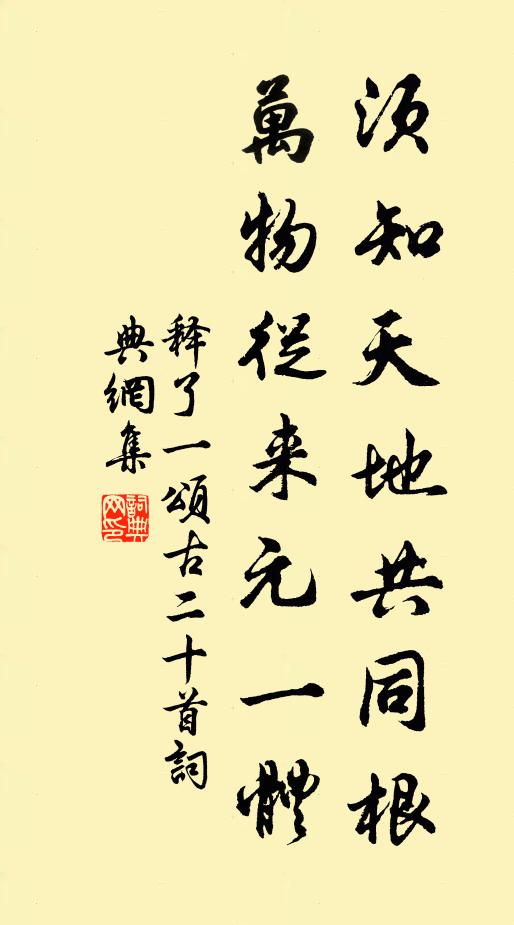 须知天地共同根
萬物從来元一體
释了一頌古二十首詞
典網集
詞典
网印